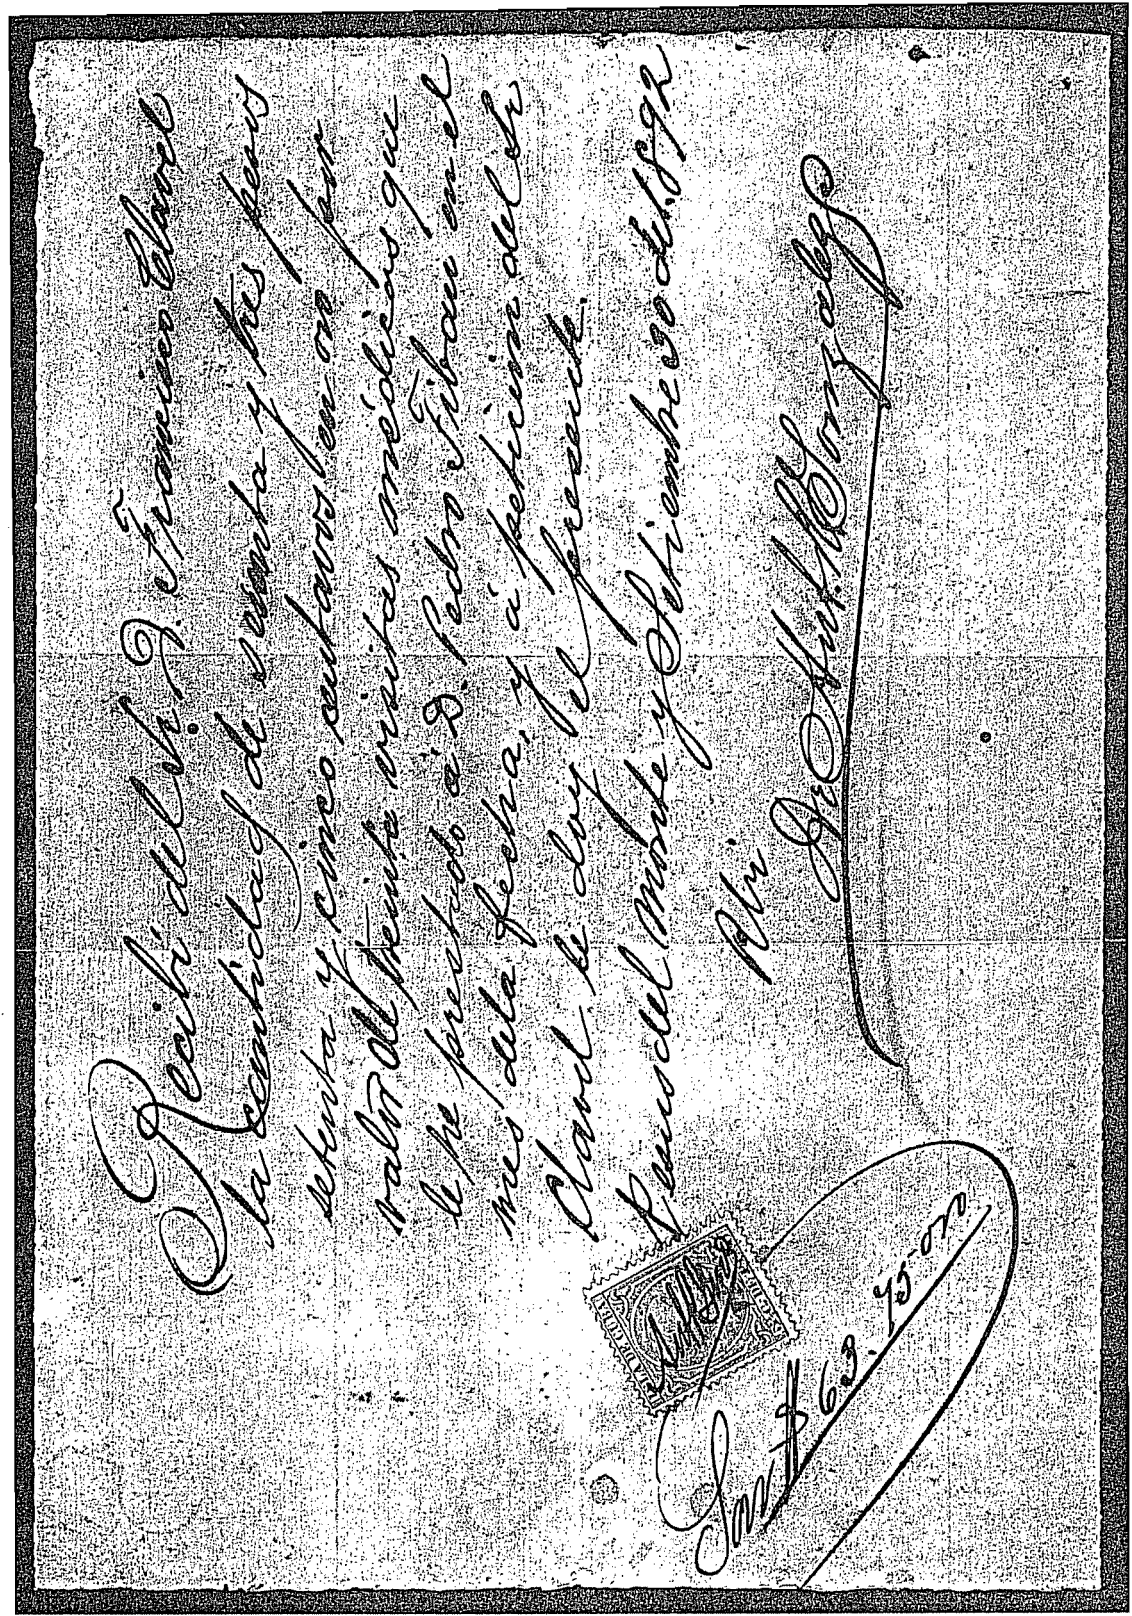 Recibí del Sr. D. Francisco Clavel
la cantidad de sesenta y tres pesos
setenta y cinco centavos en oro por
valor de treinta visitas médicas que
le he prestado á D. Pedro Tibau en el
mes de la fecha, y á petición del Sr
Clavel le doy el presente.
del Monte y Setiembre 30 de 1.892
Dr Ant. M. Gonzalez
Son $ 63. 75 - oro